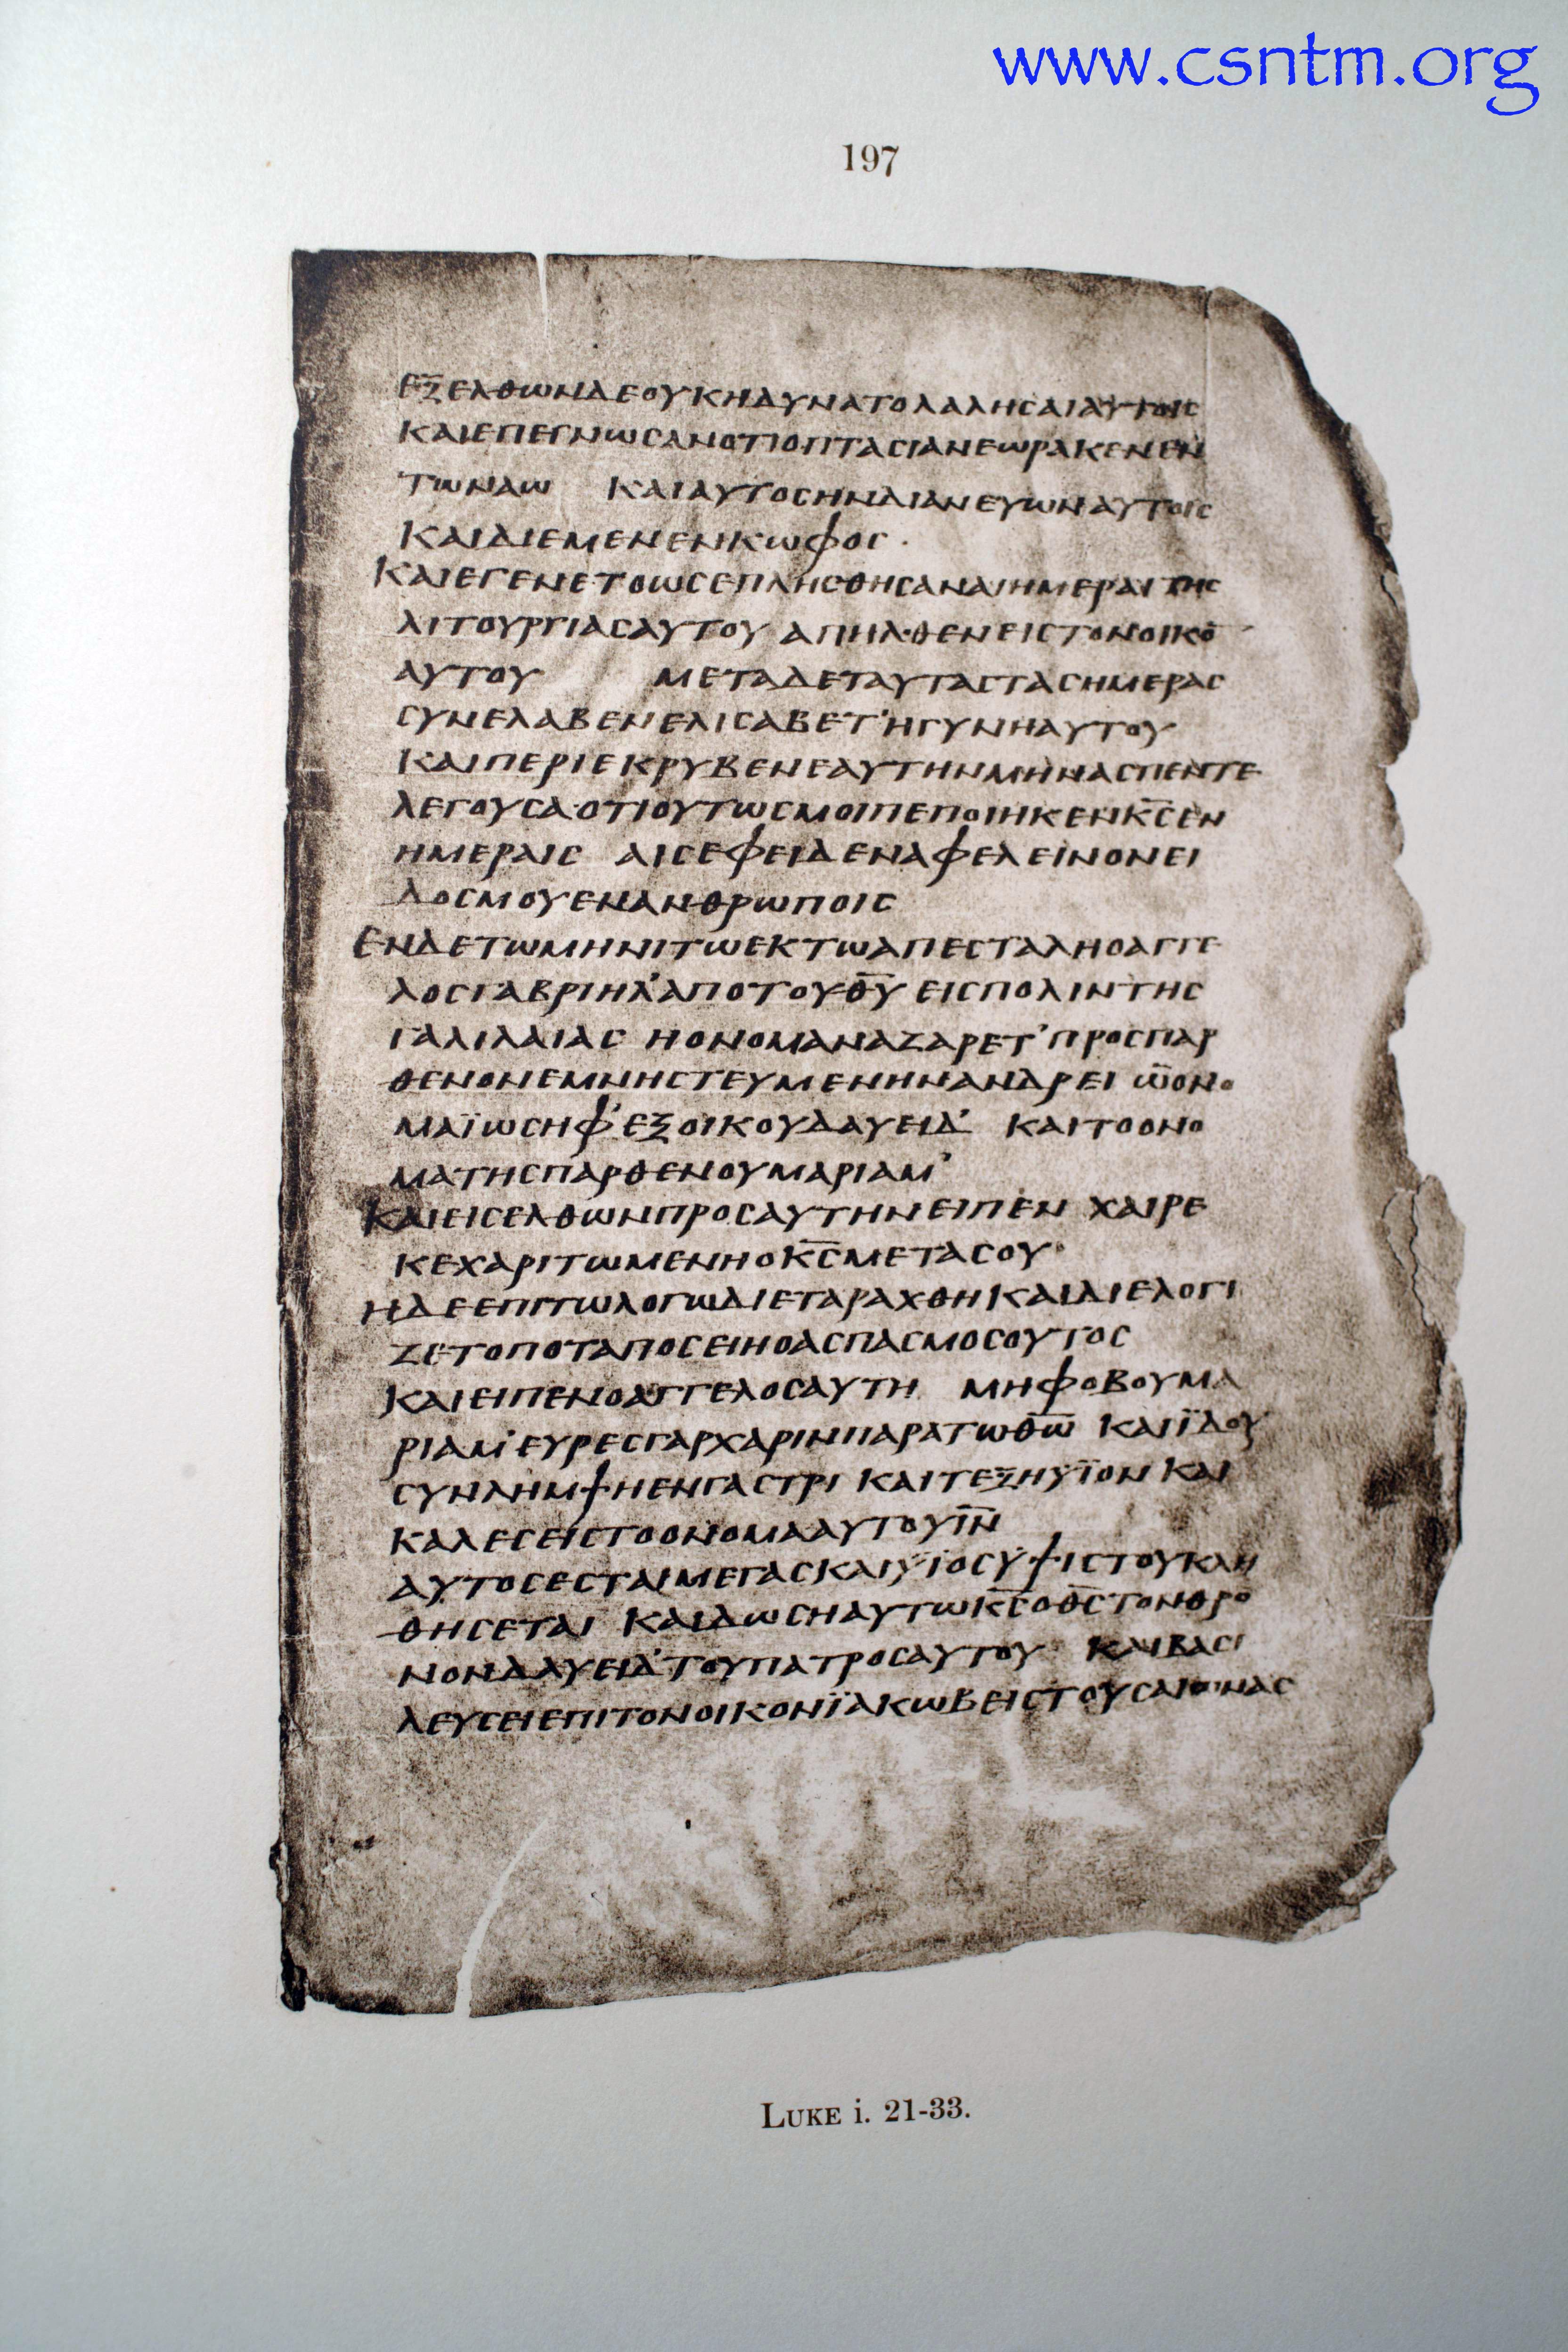 www.csntm.org
197
ΕΞΕΛΘΩΝΔΕΟΥΚΗΔΥΝΑΤΟΛΑΛΗΣΑΙΑΥΤΟΙϹ
ΚΑΙΕΠΕΓΝΩϹΑΝΟΤΙΟΠΤΑϹΙΑΝΕΩΡΑΚΕΝΕΝ
ΤΩΝΑΩ ΚΑΙΑΥΤΟϹΗΝΔΙΑΝΕΥΩΝΑΥΤΟΙϹ
ΚΑΙΔΙΕΜΕΝΕΝΚΩΦΟϹ·
ΚΑΙΕΓΕΝΕΤΟΩϹΕΠΛΗϹΘΗϹΑΝΑΙΗΜΕΡΑΙΤΗϹ
ΛΙΤΟΥΡΓΙΑϹΑΥΤΟΥ ΑΠΗΛΘΕΝΕΙϹΤΟΝΟΙΚΟ̅
ΑΥΤΟΥ ΜΕΤΑΔΕΤΑΥΤΑϹΤΑϹΗΜΕΡΑϹ
ϹΥΝΕΛΑΒΕΝΕΛΙϹΑΒΕΤ᾽ΗΓΥΝΗΑΥΤΟΥ
ΚΑΙΠΕΡΙΕΚΡΥΒΕΝΕΑΥΤΗΝΜΗΝΑϹΠΕΝΤΕ
ΛΕΓΟΥϹΑ·ΟΤΙΟΥΤΩϹΜΟΙΠΕΠΟΙΗΚΕΝΚ̅Ϲ̅ΕΝ
ΗΜΕΡΑΙϹ ΑΙϹΕΦΕΙΔΕΝΑΦΕΛΕΙΝΟΝΕΙ
ΔΟϹΜΟΥΕΝΑΝΘΡΩΠΟΙϹ
ΕΝΔΕΤΩΜΗΝΙΤΩΕΚΤΩΑΠΕϹΤΑΛΗΟΑΓΓΕ
ΛΟϹΓΑΒΡΙΗΛ᾽ΑΠΟΤΟΥΘ̅Υ̅ ΕΙϹΠΟΛΙΝΤΗϹ
ΓΑΛΙΛΑΙΑϹ ΗΟΝΟΜΑΝΑΖΑΡΕΤ᾽ΠΡΟϹΠΑΡ
ΘΕΝΟΝΕΜΝΗϹΤΕΥΜΕΝΗΝΑΝΔΡΕΙ ΩΟΝΟ
ΜΑΪΩϹΗΦ᾽ΕΞΟΙΚΟΥΔΑΥΕΙΔ᾽ ΚΑΙΤΟΟΝΟ
ΜΑΤΗϹΠΑΡΘΕΝΟΥΜΑΡΙΑΜ᾽
ΚΑΙΕΙϹΕΛΘΩΝΠΡΟϹΑΥΤΗΝΕΙΠΕΝ ΧΑΙΡΕ
ΚΕΧΑΡΙΤΩΜΕΝΗΟΚ̅Ϲ̅ΜΕΤΑϹΟΥ·
ΗΔΕΕΠΙΤΩΛΟΓΩΔΙΕΤΑΡΑΧΘΗΚΑΙΔΙΕΛΟΓΙ
ΖΕΤΟΠΟΤΑΠΟϹΕΙΗΟΑϹΠΑϹΜΟϹΟΥΤΟϹ
ΚΑΙΕΙΠΕΝΟΑΓΓΕΛΟϹΑΥΤΗ ΜΗΦΟΒΟΥΜΑ
ΡΙΑΜ᾽ΕΥΡΕϹΓΑΡΧΑΡΙΝΠΑΡΑΤΩΘ̅Ω̅ ΚΑΙΪΔΟΥ
ϹΥΝΛΗΜΨΗΕΝΓΑϹΤΡΙ ΚΑΙΤΕΞΗΫΙΟΝΚΑΙ
ΚΑΛΕϹΕΙϹΤΟΟΝΟΜΑΑΥΤΟΥΙ̅Ν̅
ΑΥΤΟϹΕϹΤΑΙΜΕΓΑϹΚΑΙΫΙΟϹΫΨΙϹΤΟΥΚΛΗ
ΘΗϹΕΤΑΙ ΚΑΙΔΩϹΗΑΥΤΩΚ̅Ϲ̅ΟΘ̅Ϲ̅ΤΟΝΘΡΟ
ΝΟΝΔΑΥΕΙΔ᾽ΤΟΥΠΑΤΡΟϹΑΥΤΟΥ ΚΑΙΒΑϹΙ
ΛΕΥϹΕΙΕΠΙΤΟΝΟΙΚΟΝΪΑΚΩΒΕΙϹΤΟΥϹΑΙΩΝΑϹ
LUKE i. 21-33.